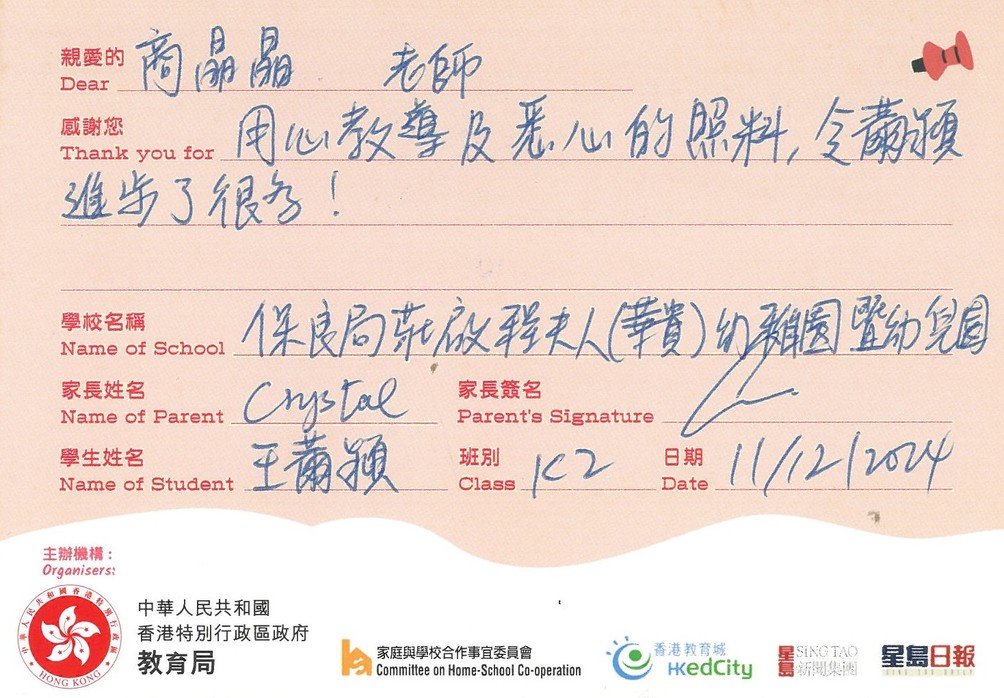 親愛的 商晶晶 老師
Dear
感謝您 用心教導及悉心的照料,令薾穎
Thank you for
進步了很多!
學校名稱
Name of School 保良局莊啟程夫人(華貴)幼稚園暨幼兒園
家長姓名 家長簽名
Name of Parent Crystal Parent's Signature
學生姓名 班別 日期
Name of Student 王薾穎 Class K2 Date 11/12/2024
主辦機構:
Organisers:
中華人民共和國香港特別行政區
HONG KONG
中華人民共和國
香港特別行政區政府
教育局
家庭與學校合作事宜委員會
Committee on Home-School Co-operation
香港教育城
HKedCity
星島 SING TAO
新聞集團
星島日報